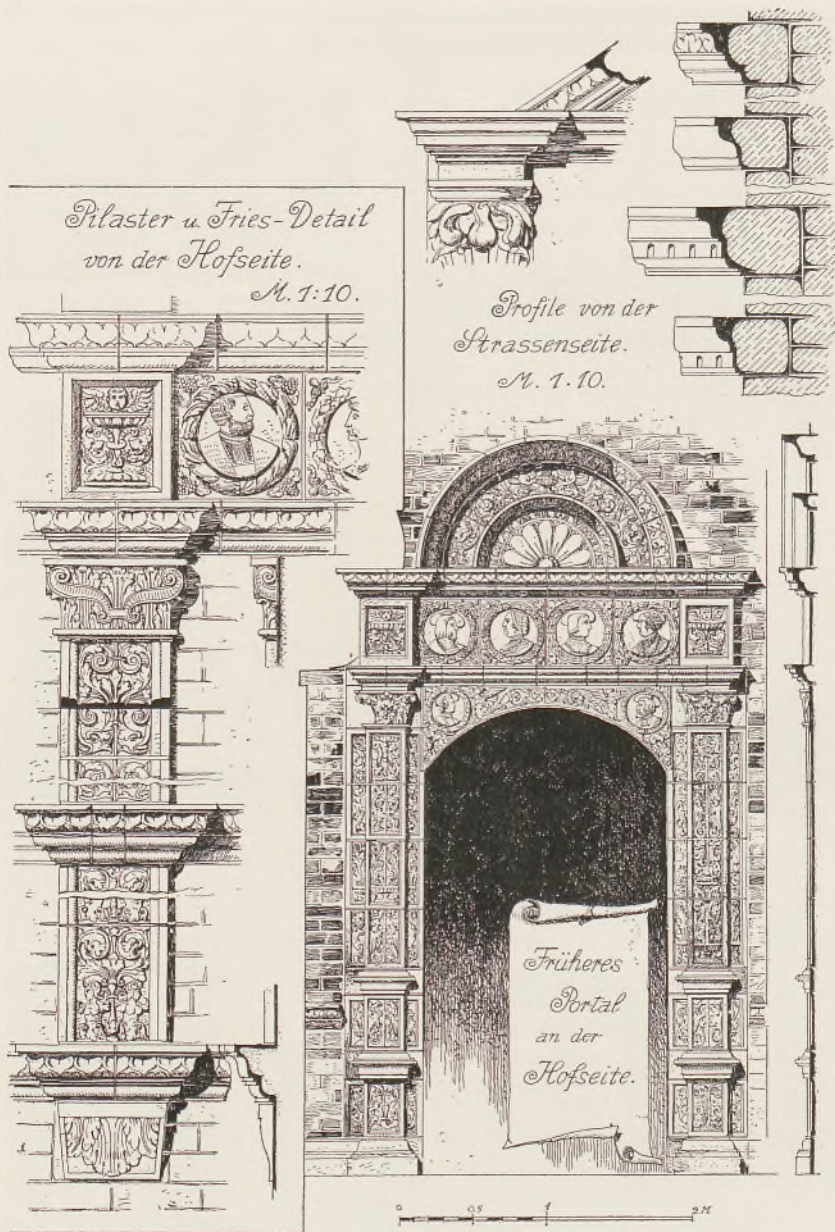 Pilaster u. Fries-Detail
von der Hofseite.
M. 1:10.
Profile von der
Strassenseite.
M. 1.10.
Früheres
Portal
an der
Hofseite.
0 0,5 1 2 M